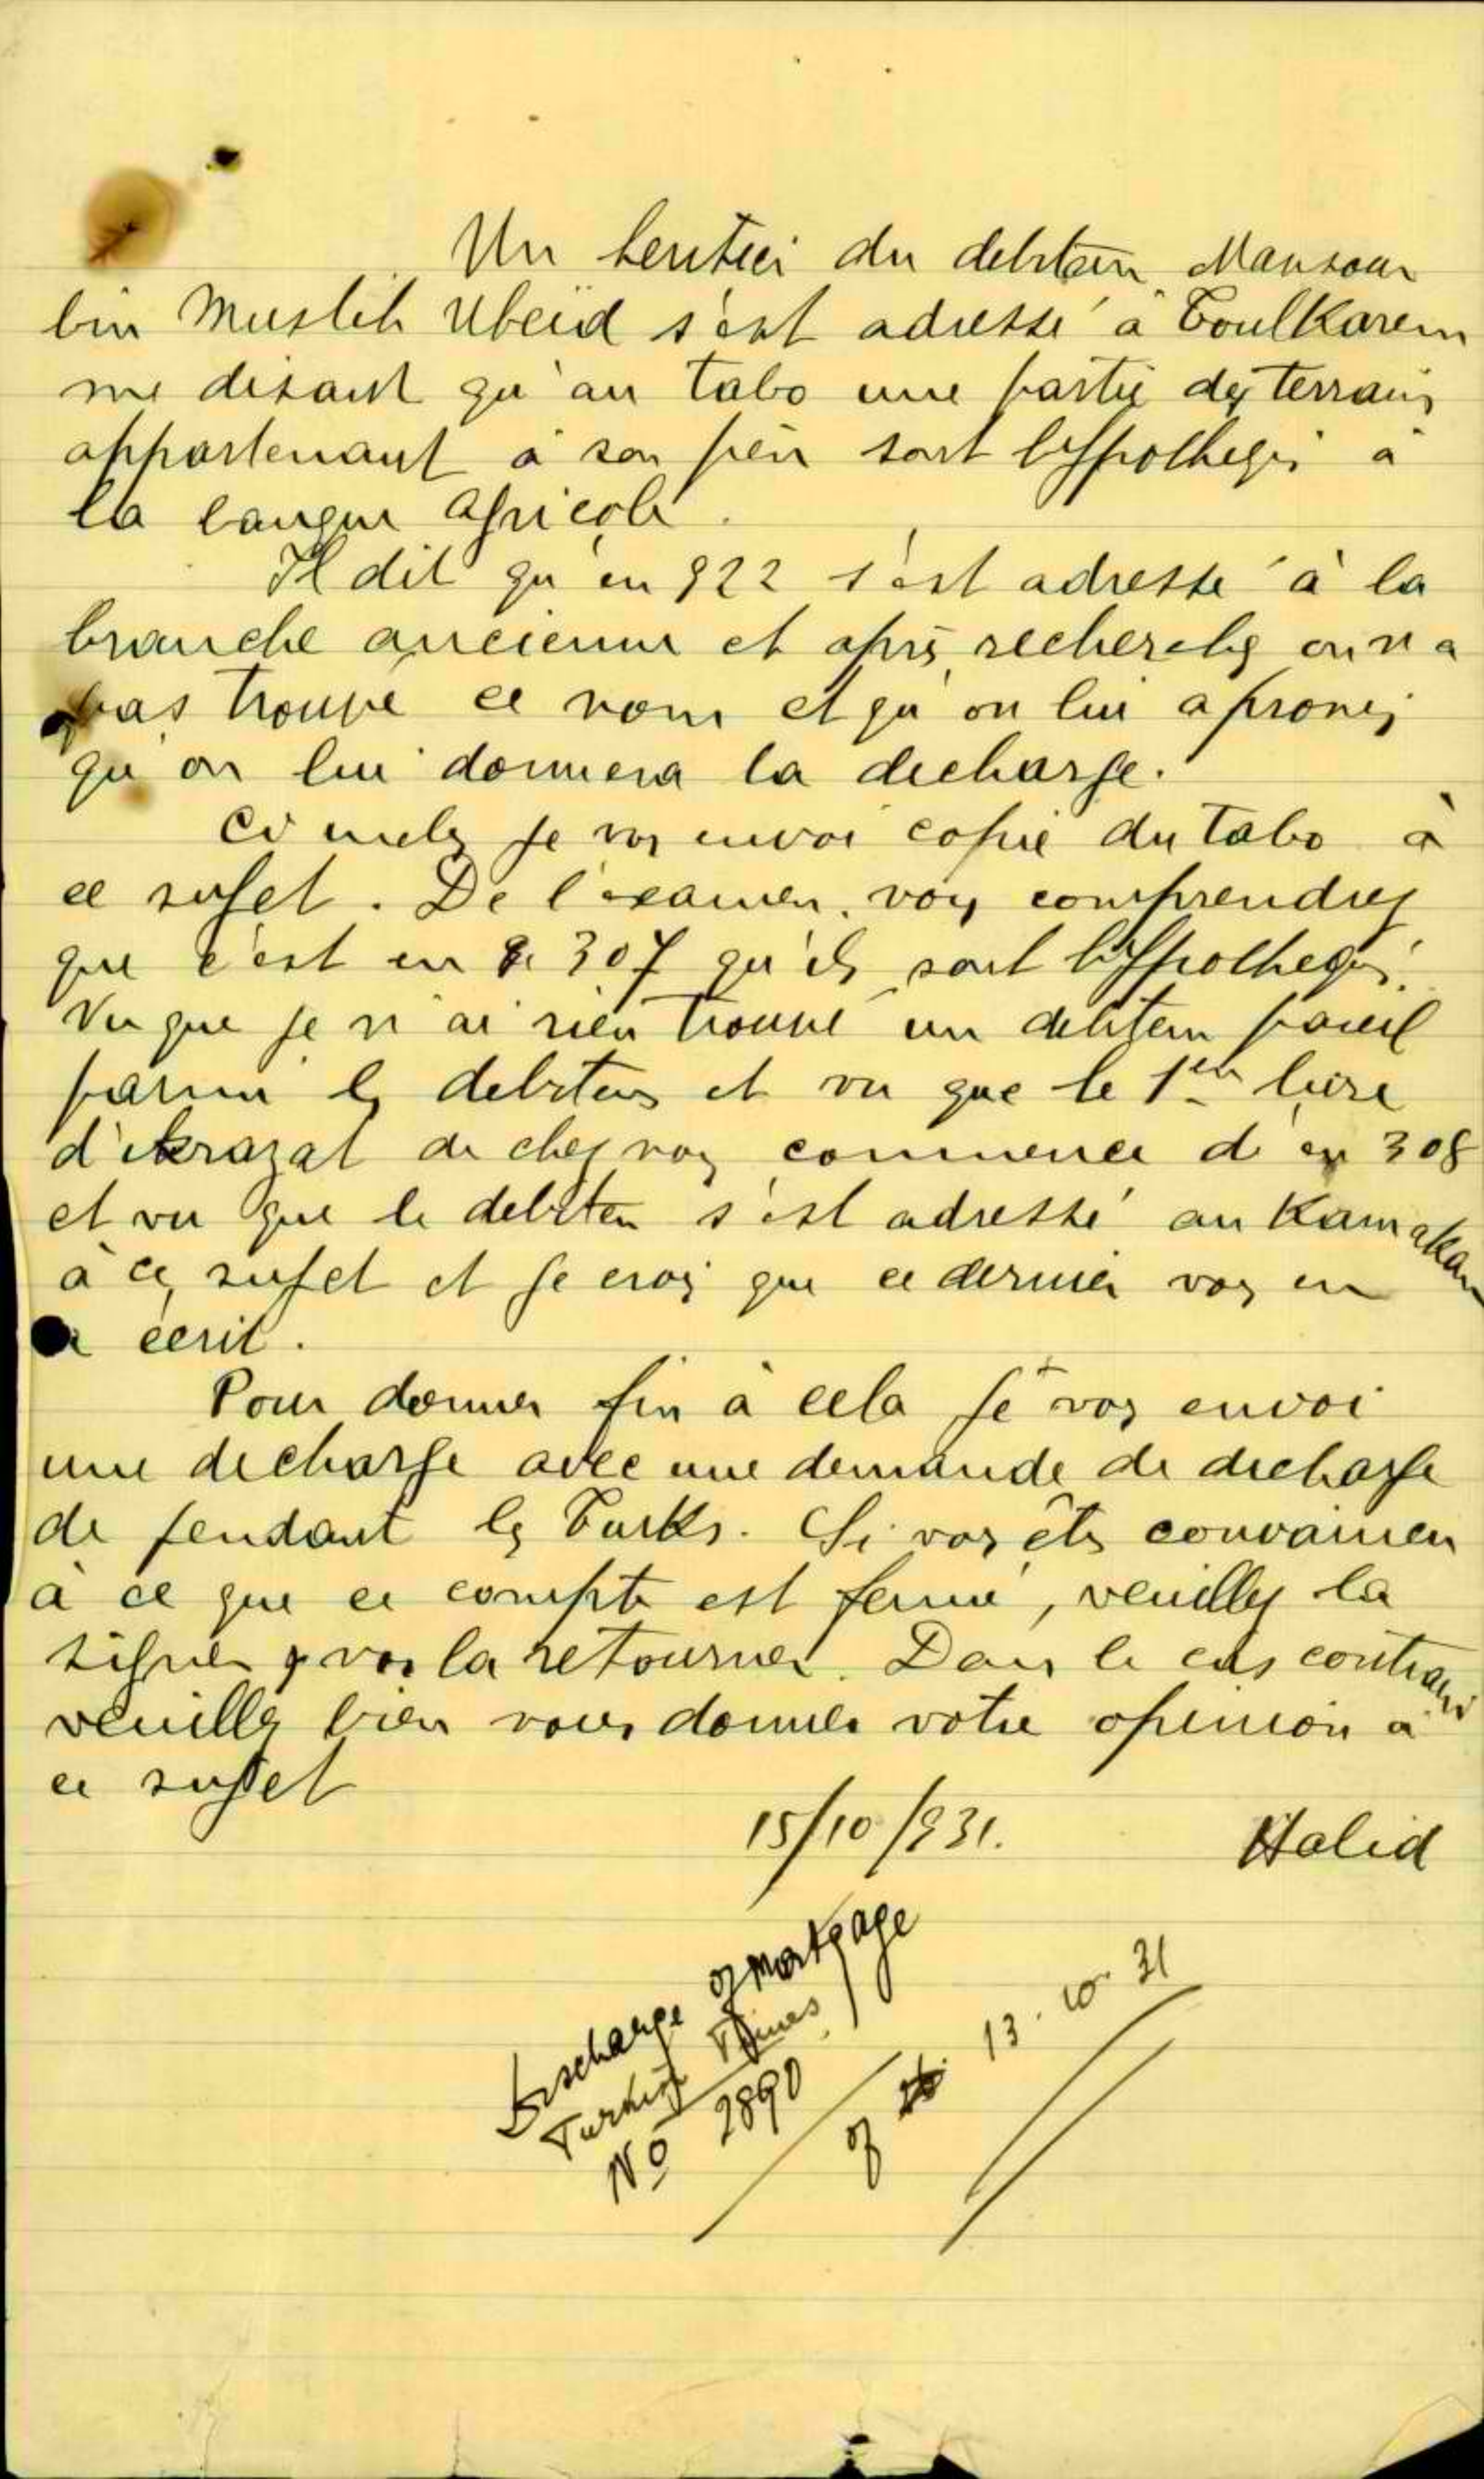 Un heritier du debiteur Mansour
bin Musleh Ubeid s'est adressé à Toulkarem
me disant qu'au Tabo une partie des terrains
appartenant à son père sont hyppothequés à
la banque agricole.
Il dit qu'en 922 s'est adressé à la
branche ancienne et après recherches on n'a
pas trouvé ce nom et qu'on lui a promis
qu'on lui donnera la decharge.
Ci inclus je vos envoi copie du Tabo à
ce sujet. De l'examen vous comprendrez
que c'est en 307 qu'ils sont hyppothequés.
Vu que je n'ai rien trouvé un debiteur pareil
parmi les debiteurs et vu que le 1er livre
d'ikrazat de chez vous commence d'en 308
et vu que le debiteur s'est adressé au Kaimakam
à ce sujet et je crois que ce dernier vos en
a écrit.
Pour donner fin à cela je vos envoi
une decharge avec une demande de decharge
de pendant les Turks. Si vos êtes convaincu
à ce que ce compte est fermé, veuillez la
signer & nos la retourner. Dans le cas contraire
veuillez bien nous donner votre opinion à
ce sujet
15/10/931. Halid
Discharge of mortgage
Turkish Times
No 2890 of 13.10.31